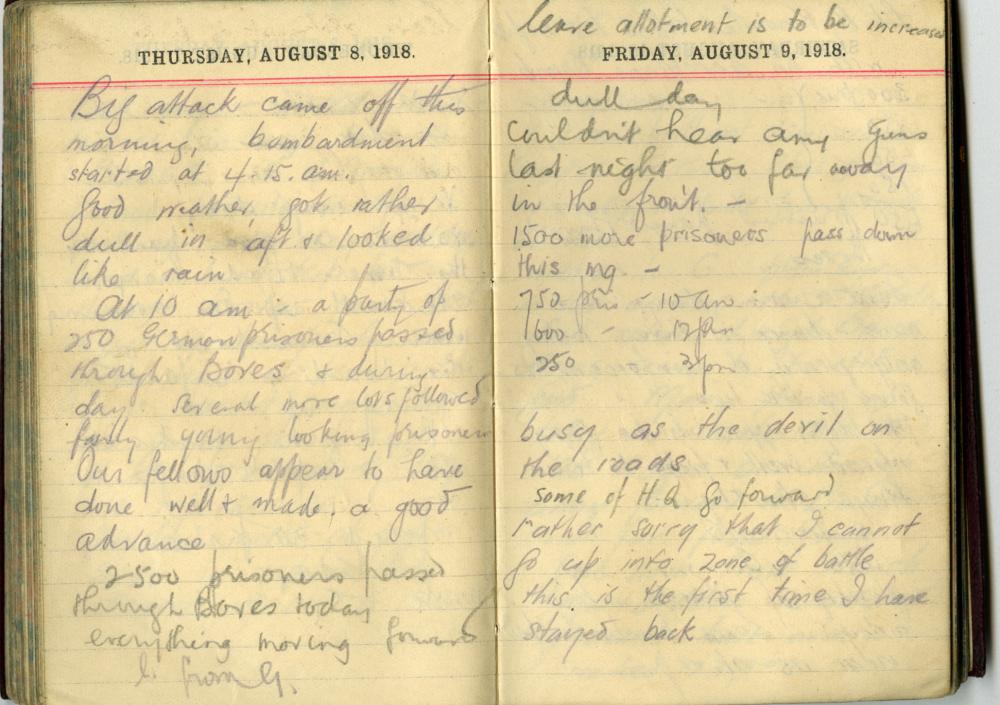 THURSDAY, AUGUST 8, 1918.
Big attack came off this
morning, bombardment
started at 4.15. am.
Good weather got rather
dull in aft & looked
like rain
At 10 am - a party of
250 German prisoners passed
through Boves & during
day several more lots followed
fairly young looking prisoners
Our fellows appear to have
done well & made, a good
advance
2500 prisoners passed
through Boves today
everything moving forward
L. from G.
leave allotment is to be increased
FRIDAY, AUGUST 9, 1918.
dull day
Couldn't hear any Guns
last night too far away
in the front. -
1500 more prisoners pass down
this mg. -
750 pris - 10 am
600 - 12 pm
250 2 pm
busy as the devil on
the roads
some of H.Q go forward
rather sorry that I cannot
go up into zone of battle
this is the first time I have
stayed back